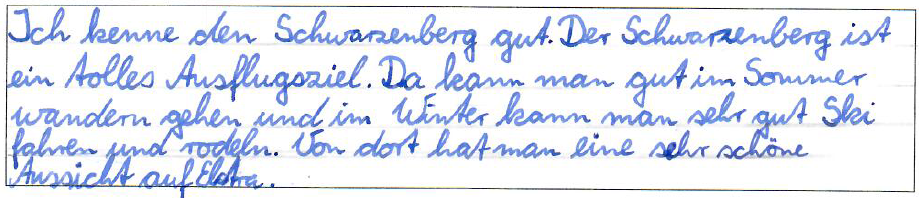 Ich kenne den Schwarzenberg gut. Der Schwarzenberg ist
ein tolles Ausflugsziel. Da kann man gut im Sommer
wandern gehen und im Winter kann man sehr gut Ski
fahren und rodeln. Von dort hat man eine sehr schöne
Aussicht auf Elstra.